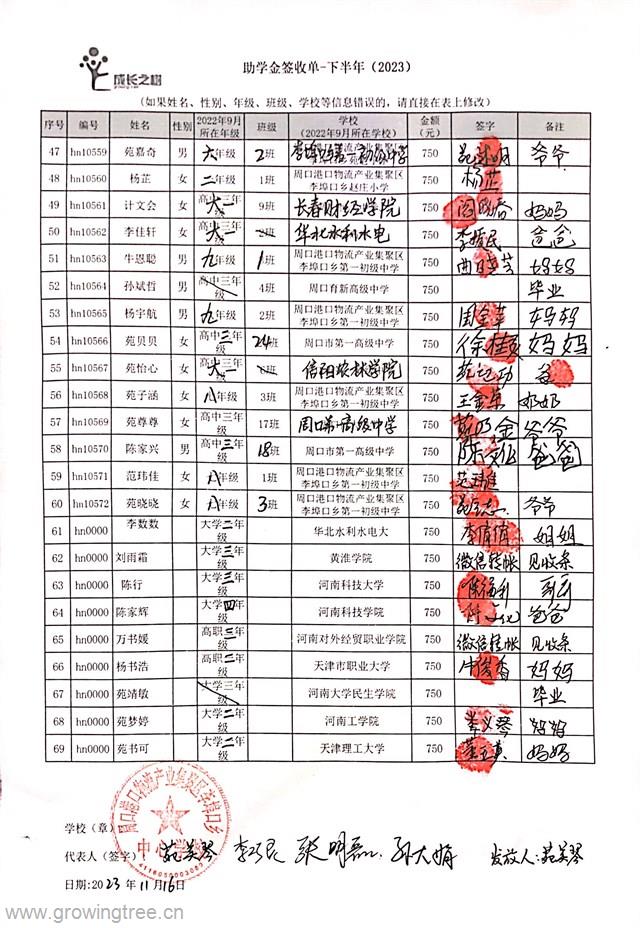 成长之树
助学金签收单-下半年（2023）
（如果姓名、性别、年级、班级、学校等信息错误的，请直接在表上修改）
序号 编号 姓名 性别 2022年9月所在年级 班级 学校（2022年9月所在学校） 金额（元） 签字 备注
47 hn10559 苑嘉奇 男 六年级 2班 750 爷爷
48 hn10560 杨芷 女 二年级 1班 周口港口物流产业集聚区李埠口乡赵庄小学 750 杨芷
49 hn10561 计文会 女 大一 9班 长春财经学院 750 妈妈
50 hn10562 李佳轩 女 大一 华北水利水电 750
51 hn10563 牛恩聪 男 九年级 1班 周口港口物流产业集聚区李埠口乡第一初级中学 750 妈妈
52 hn10564 孙斌哲 男 高中三年级 4班 周口育新高级中学 750 毕业
53 hn10565 杨宇航 男 九年级 2班 周口港口物流产业集聚区李埠口乡第一初级中学 750 妈妈
54 hn10566 苑贝贝 女 高中三年级 24班 周口市第一高级中学 750 妈妈
55 hn10567 苑怡心 女 大一 信阳农林学院 750
56 hn10568 苑子涵 女 八年级 3班 周口港口物流产业集聚区李埠口乡第一初级中学 750 奶奶
57 hn10569 苑尊尊 女 高中三年级 17班 750 爷爷
58 hn10570 陈家兴 男 高中三年级 18班 周口市第一高级中学 750 爸爸
59 hn10571 范玮佳 女 八年级 1班 周口港口物流产业集聚区李埠口乡第一初级中学 750
60 hn10572 苑晓晓 女 八年级 3班 周口港口物流产业集聚区李埠口乡第一初级中学 750 爷爷
61 hn0000 李数数 大学二年级 华北水利水电大 750 李倩倩 姐姐
62 hn0000 刘雨霜 大学三年级 黄淮学院 750 微信转帐 见收条
63 hn0000 陈行 大学三年级 河南科技大学 750 陈福利
64 hn0000 陈家辉 大学四年级 河南科技学院 750 爸爸
65 hn0000 万书媛 高职三年级 河南对外经贸职业学院 750 微信转帐 见收条
66 hn0000 杨书浩 高职二年级 天津市职业大学 750 牛俊香 妈妈
67 hn0000 苑靖敏 大学三年级 河南大学民生学院 750 毕业
68 hn0000 苑梦婷 大学二年级 河南工学院 750 李义琴 妈妈
69 hn0000 苑书可 大学二年级 天津理工大学 750 妈妈
周口港口物流产业集聚区李埠口乡
中心学校
学校（章）
代表人（签字）： 苑美琴 张明磊 孙大娟 发放人：苑美琴
日期：2023年11月16日
www.growingtree.cn